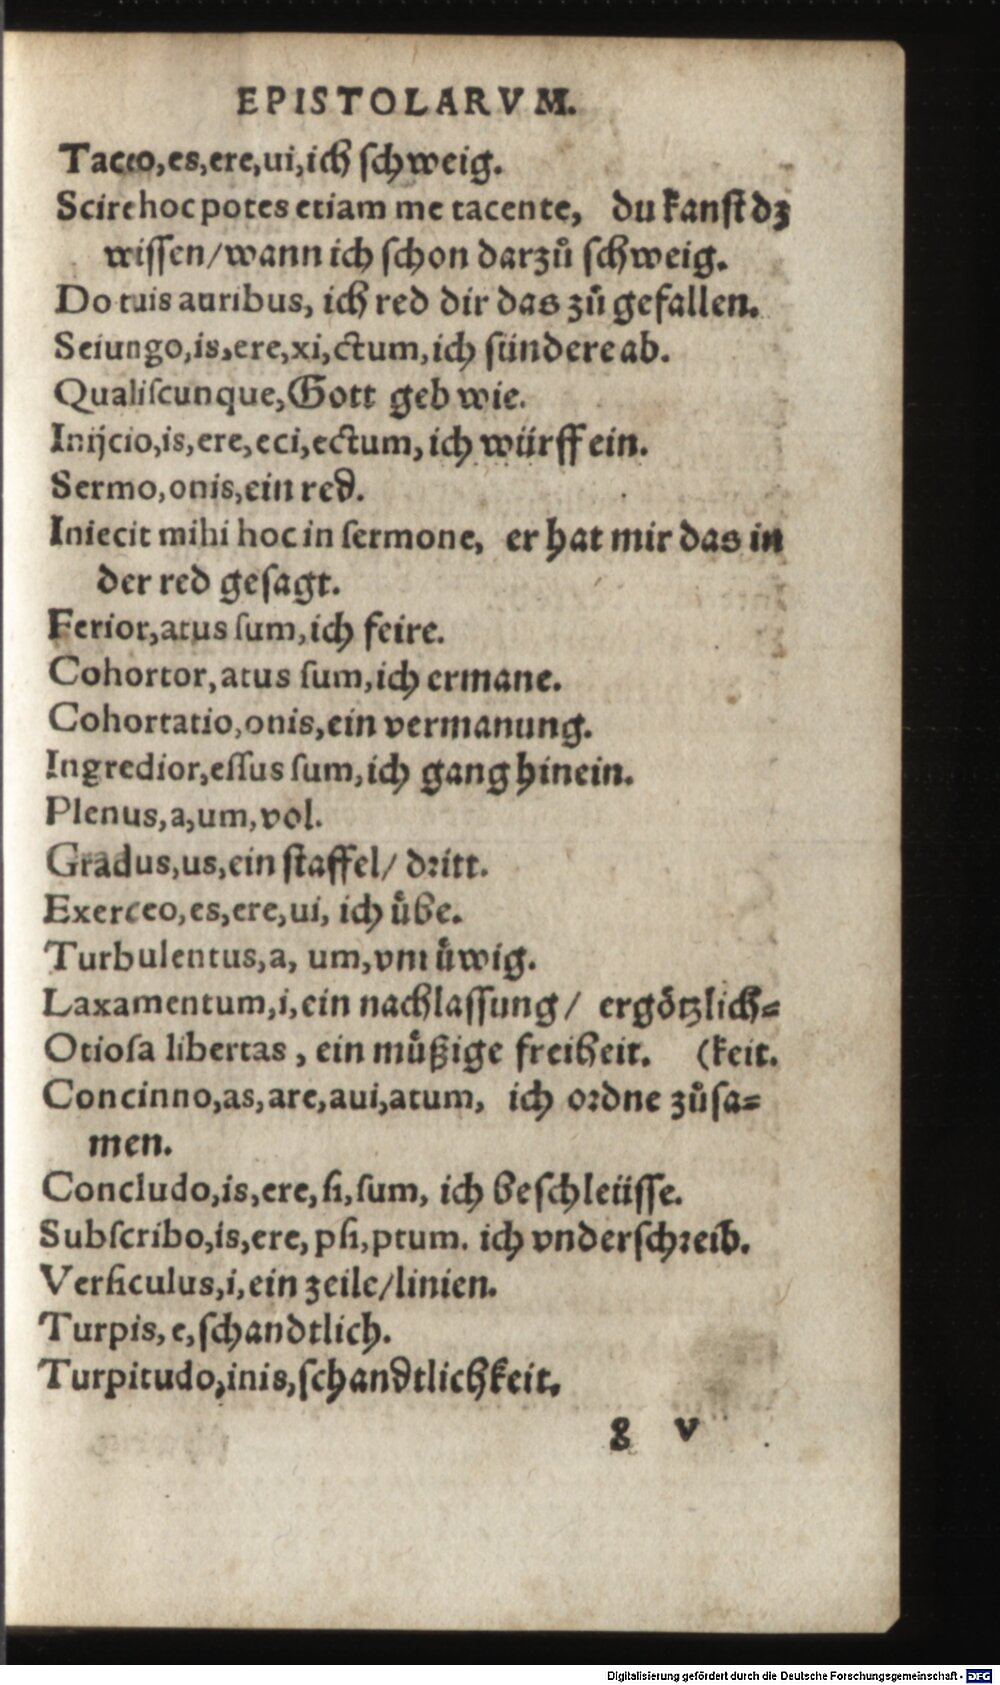 EPISTOLARVM.
Taceo,es,ere,ui,ich schweig.
Scire hoc potes etiam me tacente, du kanst dz
wissen/wann ich schon darzů schweig.
Do tuis auribus, ich red dir das zů gefallen.
Seiungo,is,ere,xi,ctum,ich sündere ab.
Qualiſcunque,Gott geb wie.
Inijcio,is,ere,eci,ectum,ich würff ein.
Sermo,onis,ein red.
Iniecit mihi hoc in ſermone, er hat mir das in
der red gesagt.
Ferior,atus ſum,ich feire.
Cohortor,atus ſum,ich ermane.
Cohortatio,onis,ein vermanung.
Ingredior,eſſus ſum,ich gang hinein.
Plenus,a,um,vol.
Gradus,us,ein staffel/ dritt.
Exerceo,es,ere,ui, ich ůbe.
Turbulentus,a, um,
Laxamentum,i,ein nachlassung/ ergötzlich=
Otioſa libertas, ein müßige freiheit. (keit.
Concinno,as,are,aui,atum, ich ordne zůsa=
men.
Concludo,is,ere,ſi,ſum, ich beschleüsse.
Subſcribo,is,ere,pſi,ptum. ich vnderschreib.
Verſiculus,i,ein zeile/linien.
Turpis,e,schandtlich.
Turpitudo,inis,schandtlichkeit.
g v
Digitalisierung gefördert durch die Deutsche Forschungsgemeinschaft - DFG